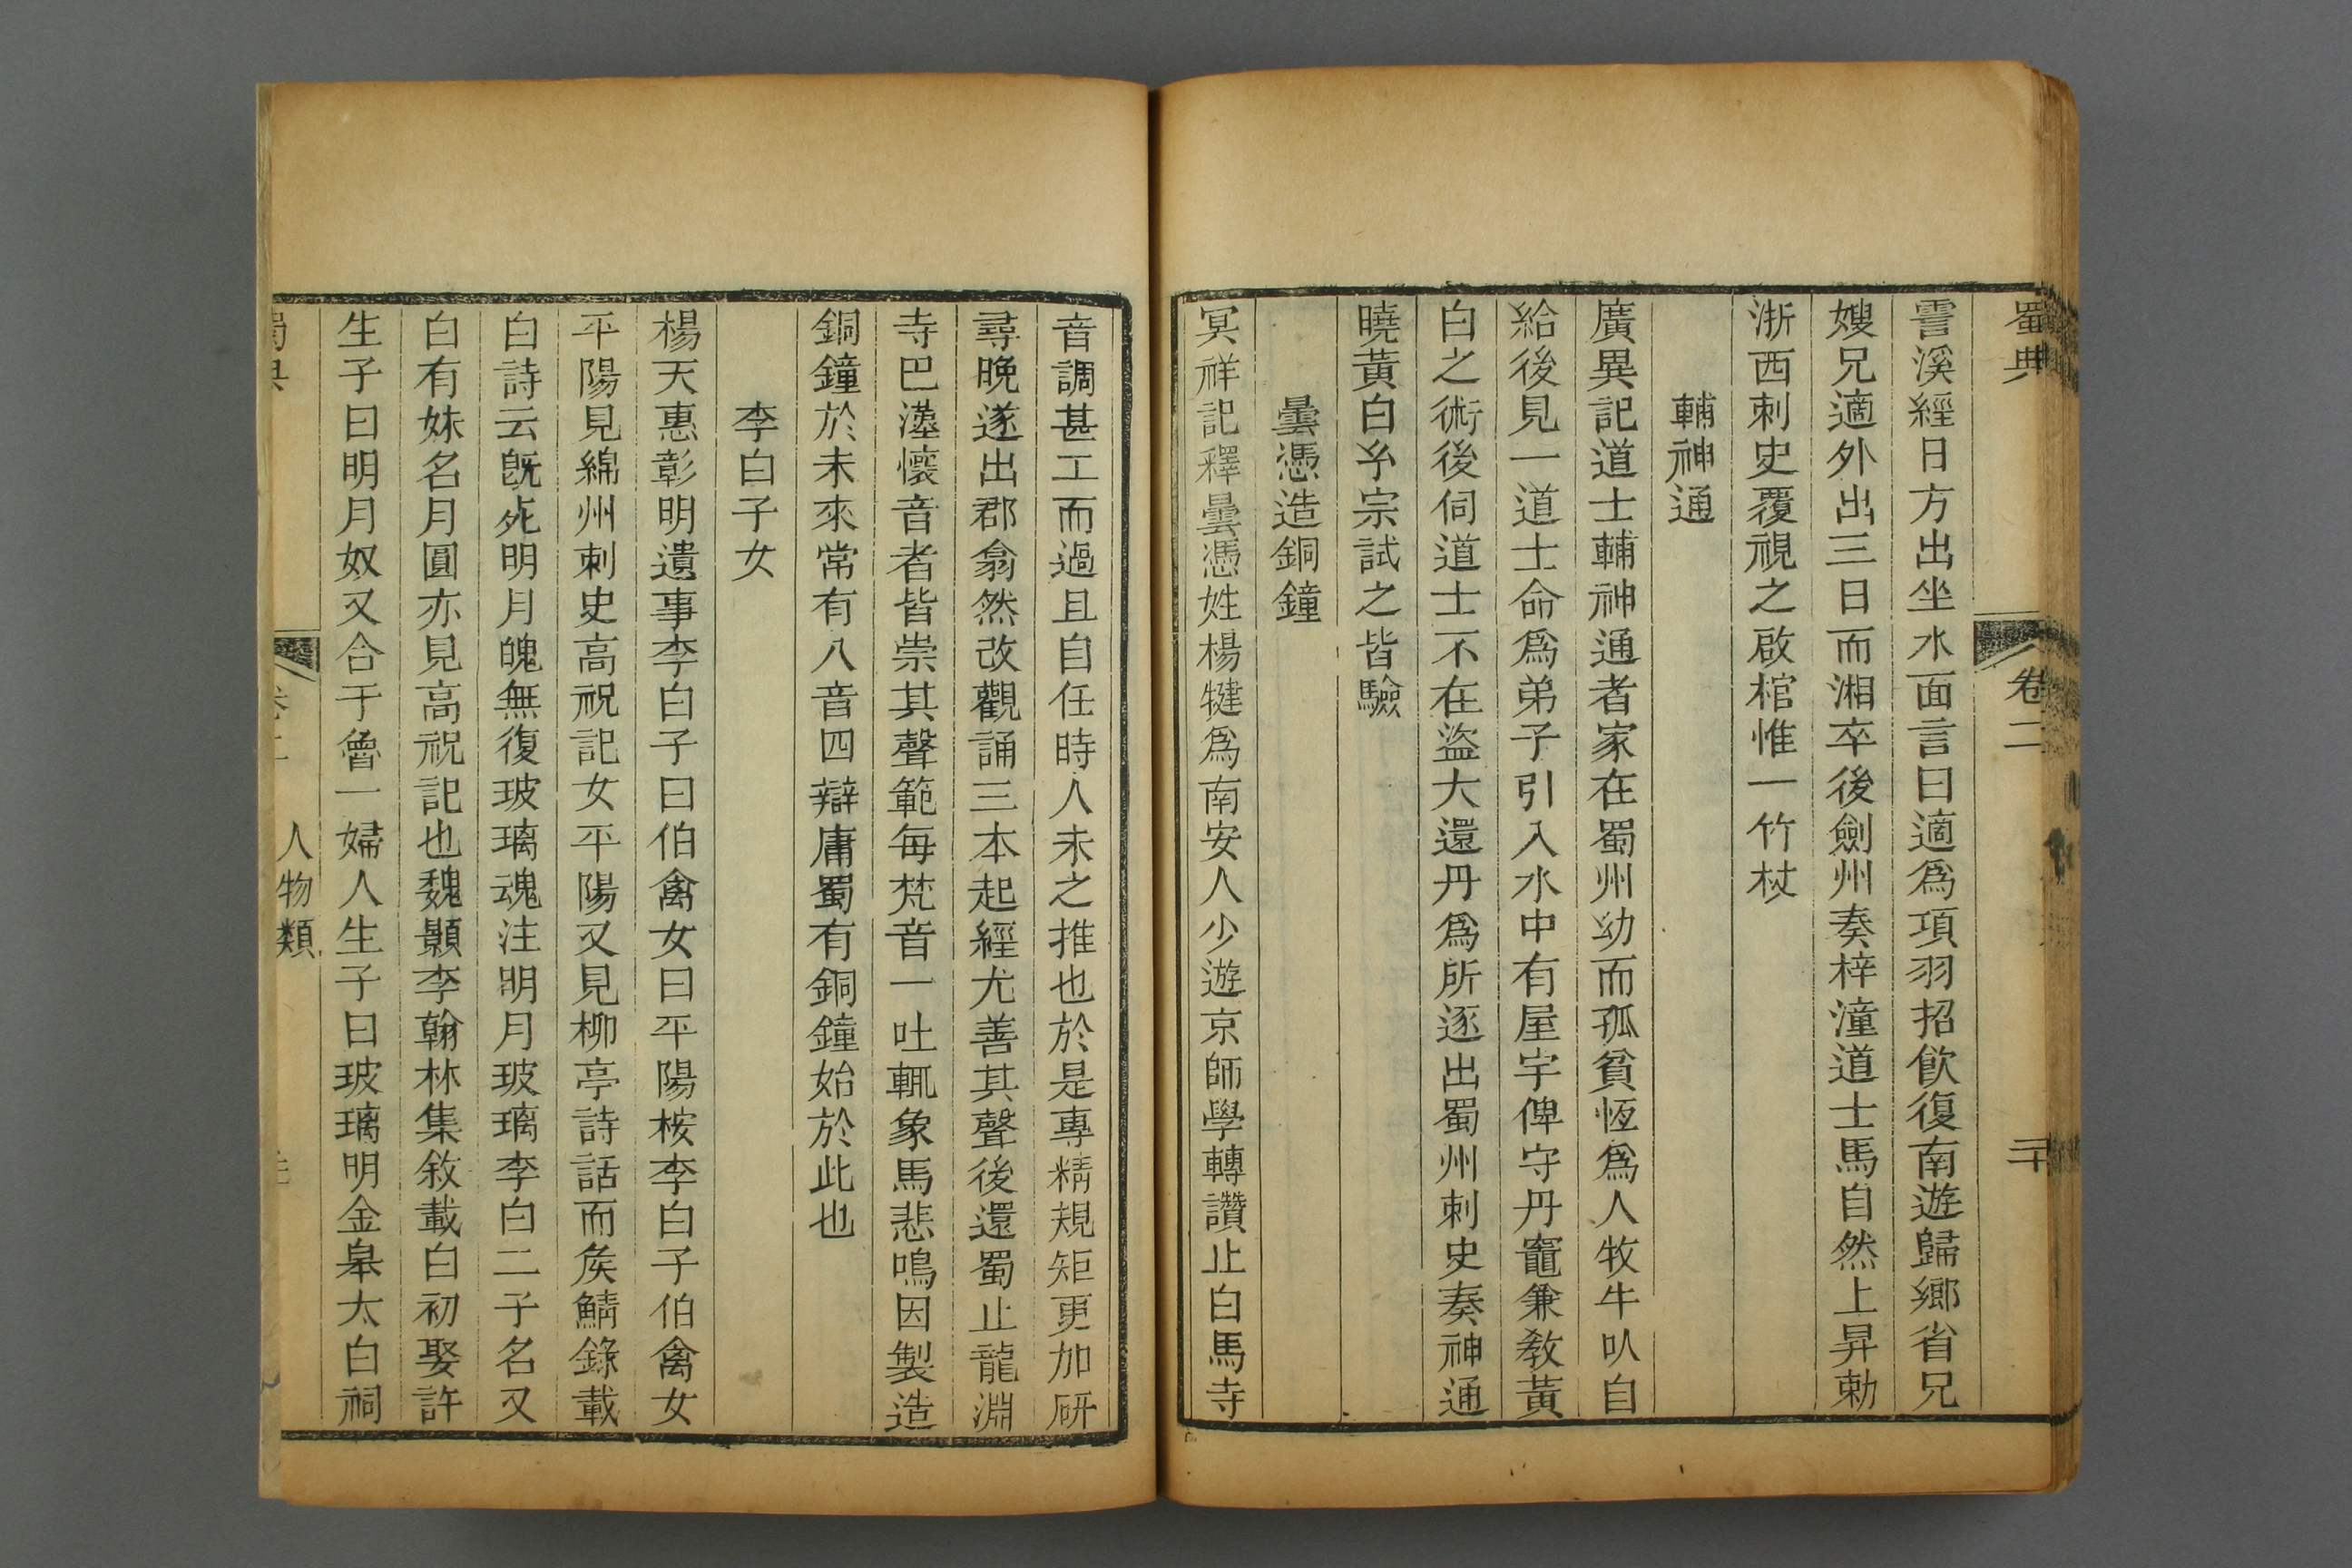 蜀典 卷二 二十
霅溪經日方出坐水面言曰適爲項羽招飲復南遊歸鄉省兄
嫂兄適外出三日而湘卒後劍州奏梓潼道士馬自然上昇勅
浙西刺史覆視之啟棺惟一竹杖
輔神通
廣異記道士輔神通者家在蜀州幼而孤貧恆爲人牧牛以自
給後見一道士命爲弟子引入水中有屋宇俾守丹竈兼教黃
白之術後伺道士不在盜大還丹爲所逐出蜀州刺史奏神通
曉黃白玄宗試之皆驗
曇憑造銅鐘
冥祥記釋曇憑姓楊犍爲南安人少遊京師學轉讚止白馬寺
音調甚工而過且自任時人未之推也於是專精規矩更加研
尋晚遂出郡翕然改觀誦三本起經尤善其聲後還蜀止龍淵
寺巴漢懷音者皆崇其聲範每梵音一吐輒象馬悲鳴因製造
銅鐘於未來常有八音四辯庸蜀有銅鐘始於此也
李白子女
楊天惠彰明遺事李白子曰伯禽女曰平陽桉李白子伯禽女
平陽見綿州刺史高祝記女平陽又見柳亭詩話而矦鯖錄載
白詩云旣死明月魄無復玻璃魂注明月玻璃李白二子名又
白有妹名月圓亦見高祝記也魏顥李翰林集敘載白初娶許
生子曰明月奴又合于魯一婦人生子曰玻璃明金臯太白祠
蜀典 卷二 人物類